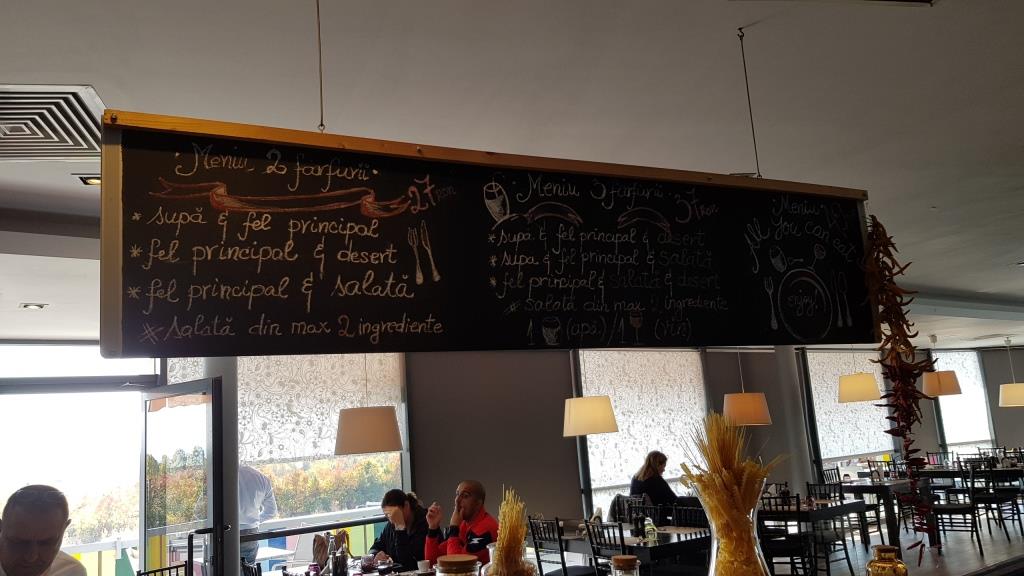 Meniu 2 farfurii
27 RON
* supă & fel principal
* fel principal & desert
* fel principal & salată
* salată din max 2 ingrediente
Meniu 3 farfurii
37 RON
* supa & fel principal & desert
* supa & fel principal & salată
* fel principal & salată & desert
* salată din max 2 ingrediente
1 (apă) / 1 (vin)
Meniu
All you can eat
enjoy!